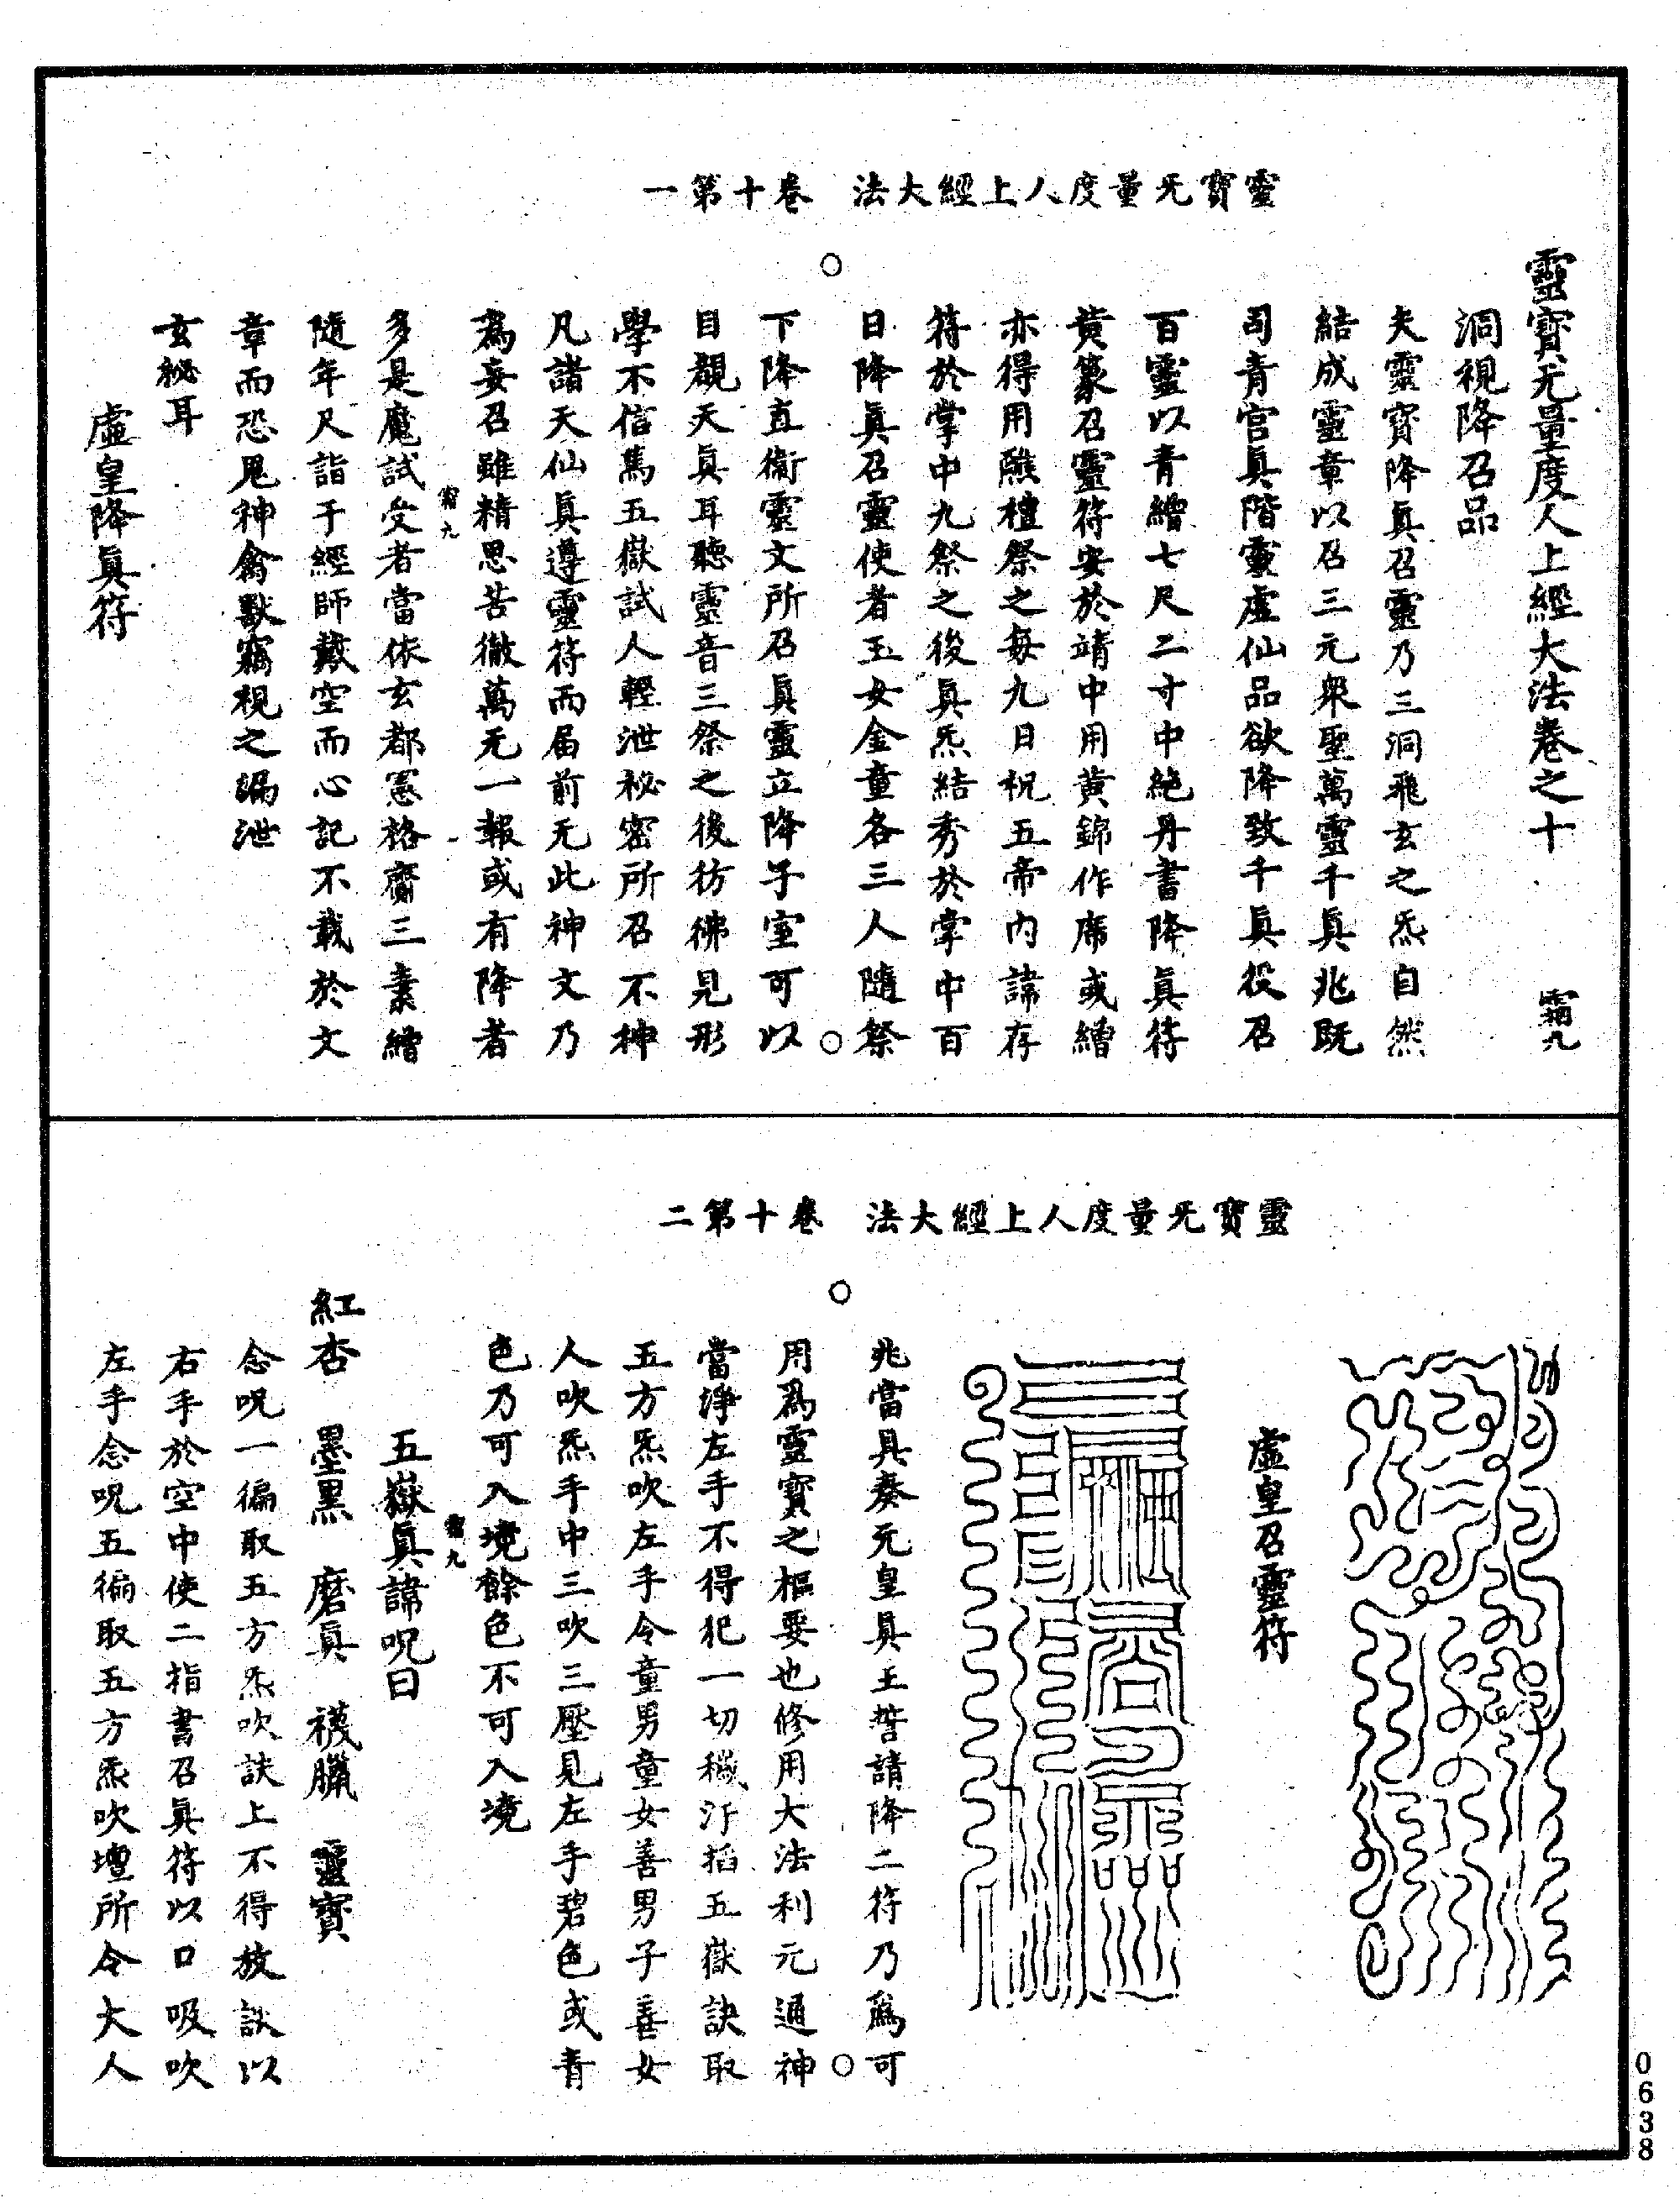 靈寶无量度人上經大法　卷十第一
靈寶无量度人上經大法卷之十　霜九
洞視降召品
夫靈寶降眞召靈乃三洞飛玄之炁自然
結成靈章以召三元衆聖萬靈千眞兆既
司青宫眞階靈虛仙品欲降致千眞役召
百靈以青繒七尺二寸中絶丹書降眞符
黄篆召靈符安於靖中用黄錦作席或繒
亦得用醮禮祭之每九日祝五帝内諱存
符於掌中九祭之後眞炁結秀於掌中百
日降眞召靈使者玉女金童各三人隨祭
下降直衛靈文所召眞靈立降子室可以
目覩天眞耳聽靈音三祭之後彷彿見形
學不信篤五嶽試人輕泄祕密所召不神
凡諸天仙眞遵靈符而届前无此神文乃
爲妄召雖精思苦徹萬无一報或有降者
霜九
多是魔試受者當依玄都憲格齎三素繒
隨年尺詣于經師戴空而心記不載於文
章而恐鬼神禽獸竊視之漏泄
玄祕耳
虛皇降眞符
靈寶无量度人上經大法　卷十第二
虛皇召靈符
兆當具奏元皇眞王誓請降二符乃爲可
用爲靈寶之樞要也修用大法利元通神
當淨左手不得犯一切穢汙掐五嶽訣取
五方炁吹左手令童男童女善男子善女
人吹炁手中三吹三壓見左手碧色或青
色乃可入境餘色不可入境
霜九
五嶽眞諱呪曰
紅杏　墨黑　磨眞　襪臘　靈寶
念呪一徧取五方炁吹訣上不得放訣以
右手於空中使二指書召眞符以口吸吹
左手念呪五徧取五方炁吹壇所令大人
0638